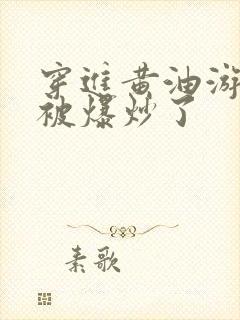 穿進黃油游
被爆炒了
素歌